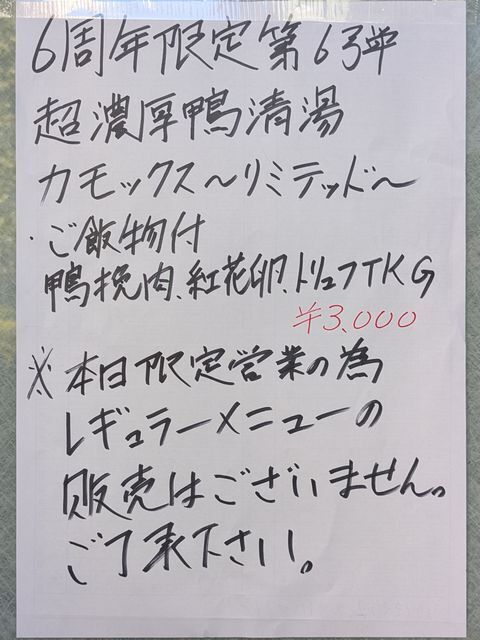 6周年限定第6弾
超濃厚鴨清湯
カモックス〜リミテッド〜
・ご飯物付
鴨挽肉、紅花卵、トリュフTKG
¥3,000
※本日限定営業の為
レギュラーメニューの
販売はございません。
ご了承下さい。